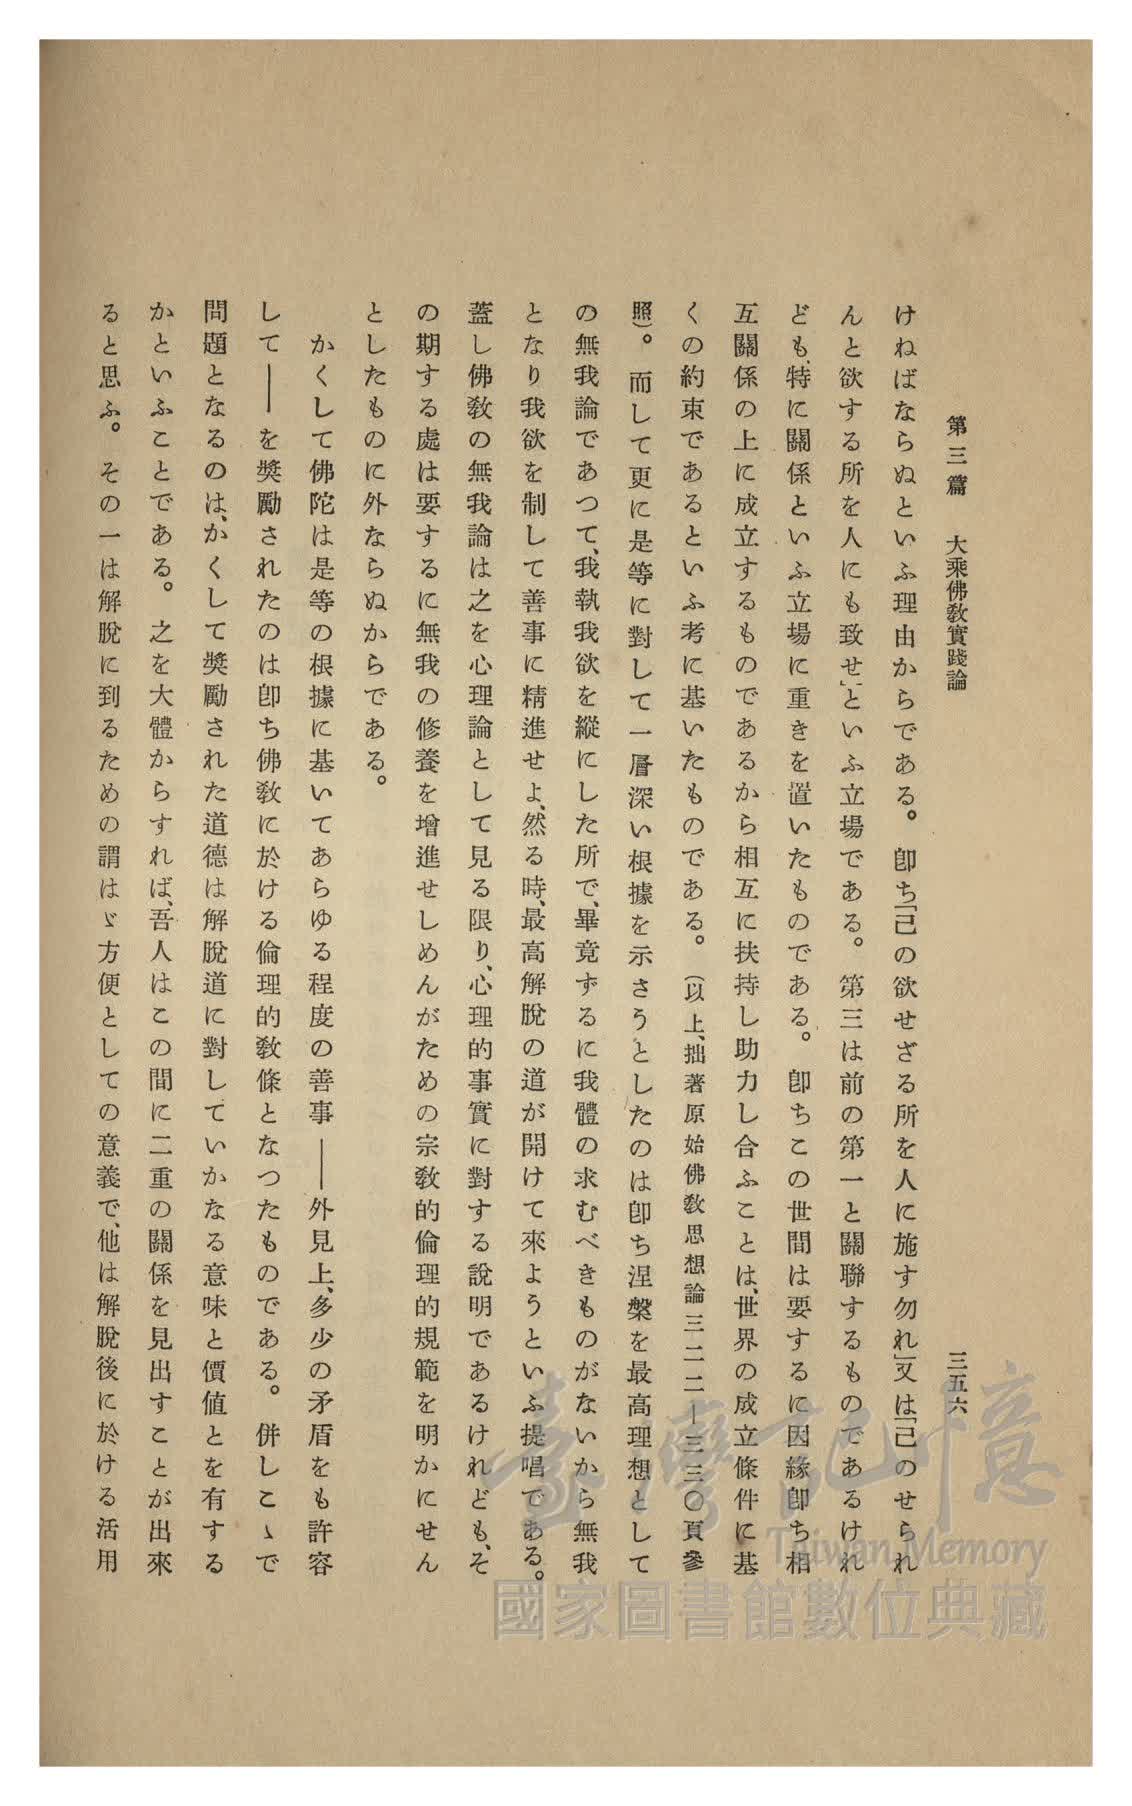 第三篇　大乘佛敎實踐論　三五六
けねばならぬといふ理由からである。卽ち「己の欲せざる所を人に施す勿れ」又は「己のせられ
んと欲する所を人にも致せ」といふ立場である。第三は前の第一と關聯するものであるけれ
ども、特に關係といふ立場に重きを置いたものである。卽ちこの世間は要するに因緣卽ち相
互關係の上に成立するものであるから相互に扶持し助力し合ふことは、世界の成立條件に基
くの約束であるといふ考に基いたものである。（以上、拙著原始佛敎思想論三二二—三三〇頁參
照）。而して更に是等に對して一層深い根據を示さうとしたのは卽ち涅槃を最高理想として
の無我論であつて、我執我欲を縱にした所で、畢竟ずるに我體の求むべきものがないから無我
となり我欲を制して善事に精進せよ、然る時、最高解脫の道が開けて來ようといふ提唱である。
蓋し佛敎の無我論は之を心理論として見る限り、心理的事實に對する說明であるけれども、そ
の期する處は要するに無我の修養を增進せしめんがための宗敎的倫理的規範を明かにせん
としたものに外ならぬからである。
かくして佛陀は是等の根據に基いてあらゆる程度の善事——外見上、多少の矛盾をも許容
して——を獎勵されたのは卽ち佛敎に於ける倫理的敎條となつたものである。併しこゝで
問題となるのは、かくして獎勵された道德は解脫道に對していかなる意味と價値とを有する
かといふことである。之を大體からすれば、吾人はこの間に二重の關係を見出すことが出來
ると思ふ。その一は解脫に到るための謂はゞ方便としての意義で、他は解脫後に於ける活用
臺灣記憶
Taiwan Memory
國家圖書館數位典藏